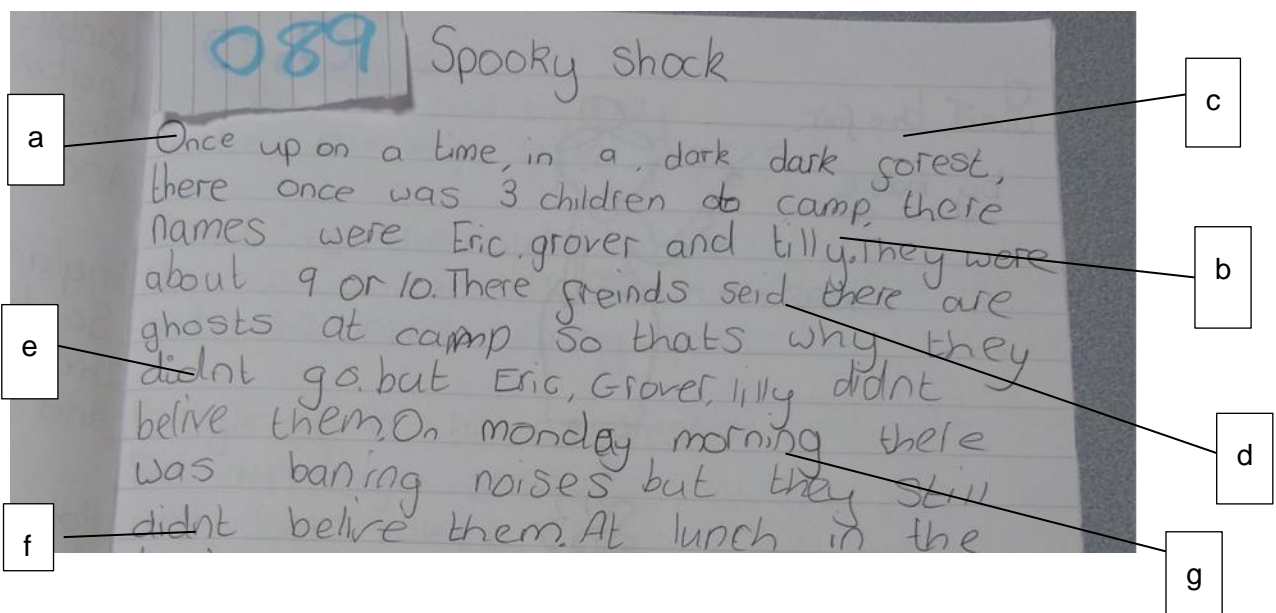 089 Spooky shock
a
c
Once up on a time, in a, dark dark forest,
there once was 3 children at camp, there
names were Eric, grover and tilly. They were
b
about 9 or 10. There freinds seid there are
e
ghosts at camp so thats why they
didnt go. but Eric, Grover, lilly didnt
belive them. On monday morning there
d
was baning noises but they still
f
didnt belive them. At lunch in the
g